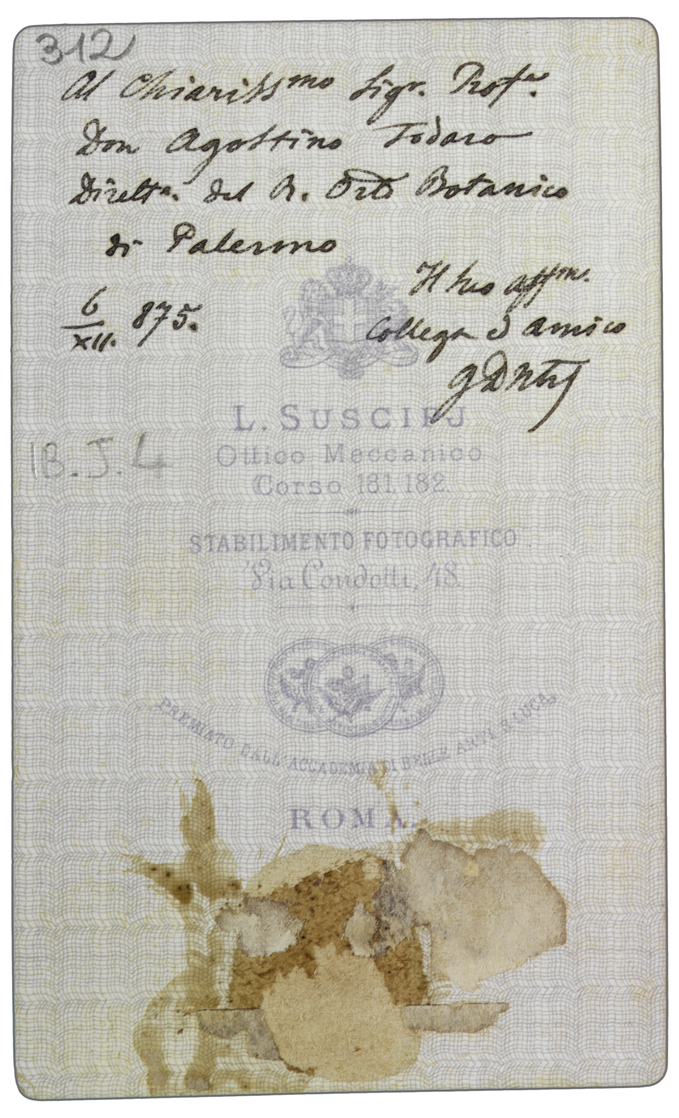 312
Al Chiarissmo Sigr. Profr.
Don Agostino Todaro
Direttr. del R. Orto Botanico
di Palermo
Il suo affmo.
6/XII. 875.
Collega ed amico
L. SUSCIPJ
Ottico Meccanico
B.J.4
Corso 181.182.
STABILIMENTO FOTOGRAFICO
Via Condotti, 48.
PREMIATO DALL'ACCADEMIA DI BELLE ARTI S. LUCA
ROMA.